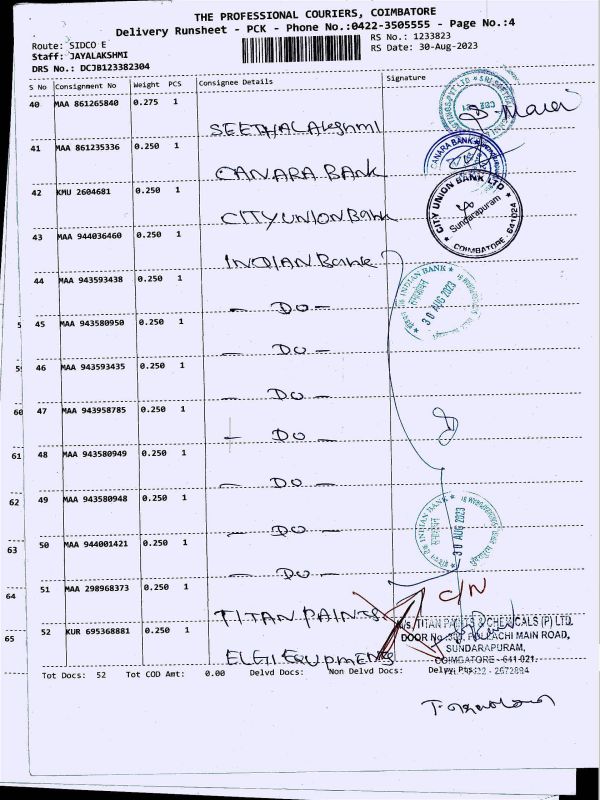 THE PROFESSIONAL COURIERS, COIMBATORE
Delivery Runsheet - PCK - Phone No.:0422-3505555 - Page No.:4
Route: SIDCO E
RS No.: 1233823
Staff: JAYALAKSHMI
RS Date: 30-Aug-2023
DRS No.: DCJB123382304
S No Consignment No Weight PCS Consignee Details Signature
40 MAA 861265840 0.275 1
SEETHALAkshmi
41 MAA 861235336 0.250 1
CANARA BANK
42 KMU 2604681 0.250 1
CITY UNION Bank
43 MAA 944036460 0.250 1
INDIAN Bank
44 MAA 943593438 0.250 1
— DO —
5 45 MAA 943580950 0.250 1
— DO —
5 46 MAA 943593435 0.250 1
— DO —
60 47 MAA 943958785 0.250 1
— DO —
61 48 MAA 943580949 0.250 1
— DO —
62 49 MAA 943580948 0.250 1
— DO —
63 50 MAA 944001421 0.250 1
— DO —
64 51 MAA 298968373 0.250 1
TITAN PAINTS
65 52 KUR 695368881 0.250 1
ELGI Equpments
Tot Docs: 52 Tot COD Amt: 0.00 Delvd Docs: Non Delvd Docs: Delvd Pts:
CANARA BANK
CITY UNION BANK LTD
Sundarapuram
COIMBATORE - 641024
INDIAN BANK
30 AUG 2023
INDIAN BANK
30 AUG 2023
C/N
TITAN PAINTS & CHEMICALS (P) LTD.
POLLACHI MAIN ROAD,
SUNDARAPURAM,
COIMBATORE - 641 021.
2672884